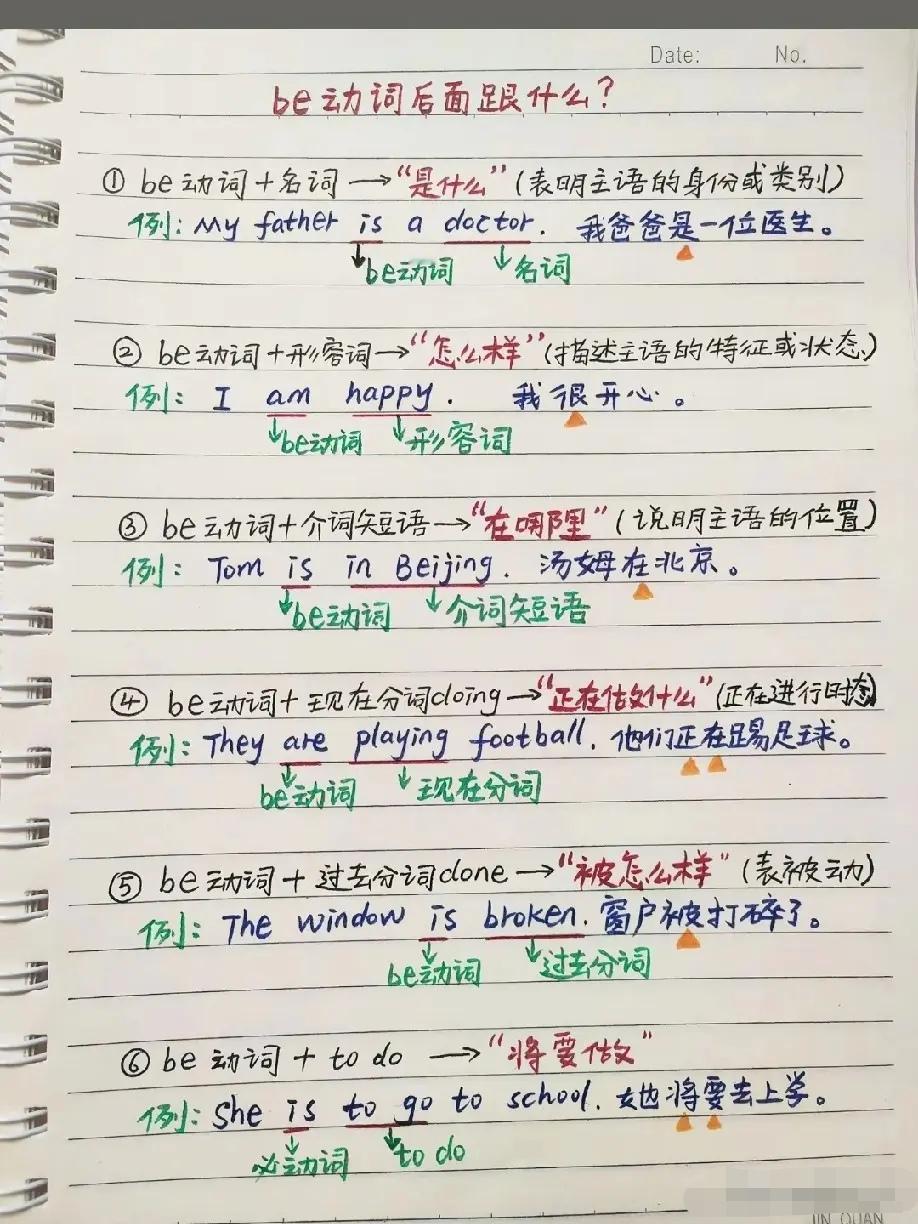 Date: No.
be动词后面跟什么?
① be动词+名词→“是什么”(表明主语的身份或类别)
例: My father is a doctor. 我爸爸是一位医生。
be动词 名词
② be动词+形容词→“怎么样”(描述主语的特征或状态)
例: I am happy. 我很开心。
be动词 形容词
③ be动词+介词短语→“在哪里”(说明主语的位置)
例: Tom is in Beijing. 汤姆在北京。
be动词 介词短语
④ be动词+现在分词doing→“正在做什么”(正在进行时态)
例: They are playing football. 他们正在踢足球。
be动词 现在分词
⑤ be动词+过去分词done→“被怎么样”(表被动)
例: The window is broken. 窗户被打碎了。
be动词 过去分词
⑥ be动词+to do→“将要做”
例: She is to go to school. 她将要去上学。
be动词 to do